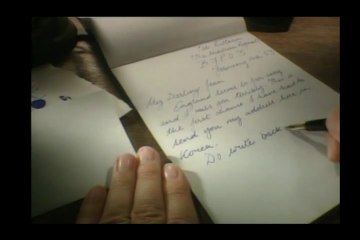 My Darling Jean
England seems so far away
and I miss you terribly. This is
the first chance I have had to
send you my address here in
Korea.
Do write back